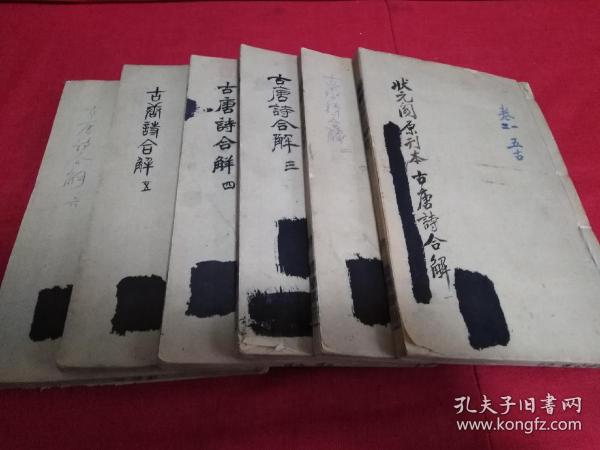 状元阁原刊本 古唐詩合解
卷之一 五古
古唐詩合解 三
古唐詩合解 四
古唐詩合解 五
古唐詩合解 六
孔夫子旧书网
www.kongfz.com